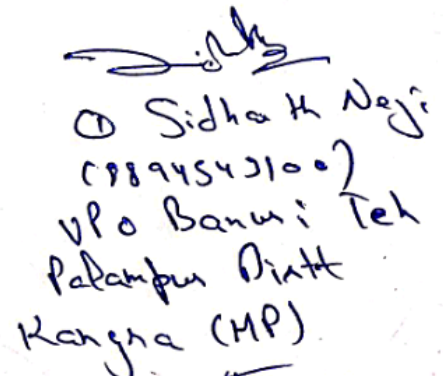 ① Sidhath Negi
(8894543100)
VPO Banuri Teh
Palampur Distt
Kangra (HP)